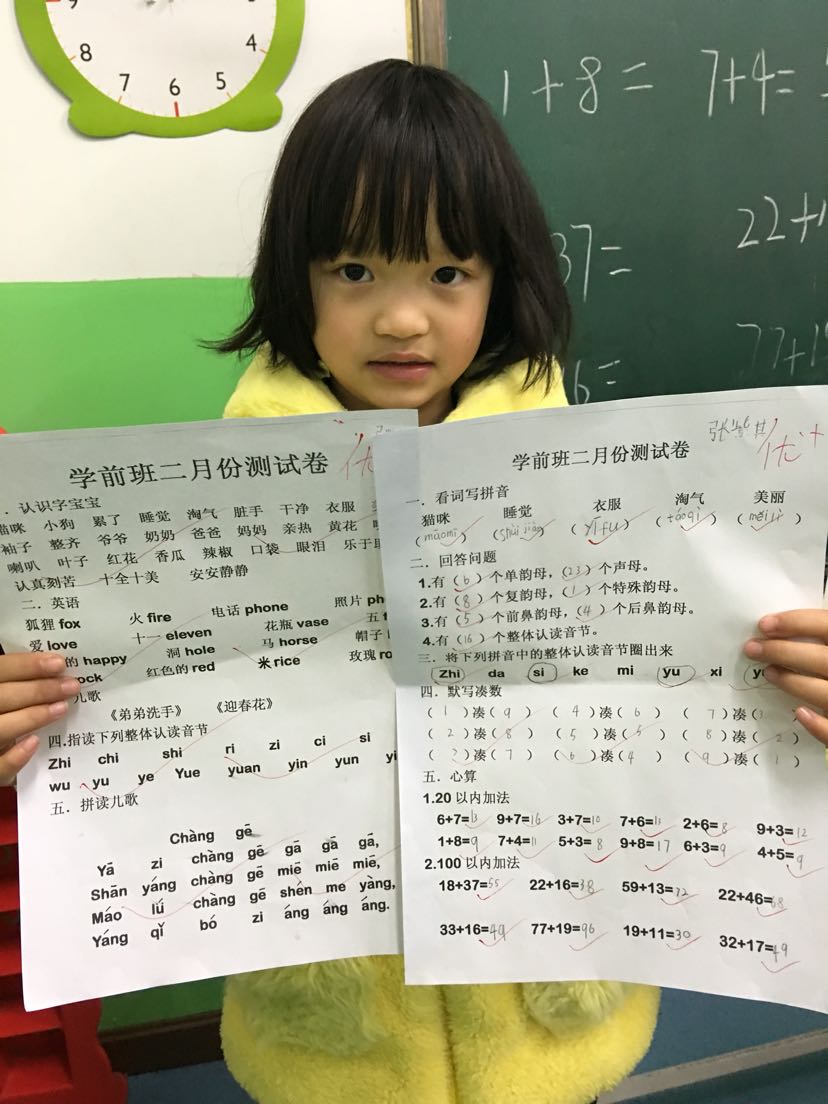 9 8 7 6 5 4 3
1+8= 7+4=
37= 22+1
6= 77+19
学前班二月份测试卷
认识字宝宝
猫咪 小狗 累了 睡觉 淘气 脏手 干净 衣服
袖子 整齐 爷爷 奶奶 爸爸 妈妈 亲热 黄花
喇叭 叶子 红花 香瓜 辣椒 口袋 眼泪 乐于
认真刻苦 十全十美 安安静静
二. 英语
狐狸 fox 火 fire 电话 phone 照片 ph
爱 love 十一 eleven 花瓶 vase 五
的 happy 洞 hole 马 horse 帽子
ock 红色的 red 米 rice 玫瑰 ro
儿歌
《弟弟洗手》 《迎春花》
四.指读下列整体认读音节
Zhi chi shi ri zi ci si
wu yu ye Yue yuan yin yun yi
五. 拼读儿歌
Chàng gē
Yā zi chàng gē gā gā gā,
Shān yáng chàng gē miē miē miē,
Máo lǘ chàng gē shén me yàng,
Yáng qǐ bó zi áng áng áng.
优+
学前班二月份测试卷
一. 看词写拼音
猫咪 睡觉 衣服 淘气 美丽
(māomī) (shùi jiào) (yīfu) (táoqì) (měilì)
二. 回答问题
1.有(6)个单韵母,(23)个声母。
2.有(8)个复韵母,(1)个特殊韵母。
3.有(5)个前鼻韵母,(4)个后鼻韵母。
4.有(16)个整体认读音节。
三. 将下列拼音中的整体认读音节圈出来
Zhi da si ke mi yu xi y
四. 默写凑数
(1)凑(9) (4)凑(6) (7)凑(3
(2)凑(8) (5)凑(5) (8)凑(2)
(3)凑(7) (6)凑(4) (9)凑(1)
五. 心算
1.20 以内加法
6+7=13 9+7=16 3+7=10 7+6=13 2+6=8 9+3=12
1+8=9 7+4=11 5+3=8 9+8=17 6+3=9 4+5=9
2.100 以内加法
18+37=55 22+16=38 59+13=72 22+46=68
33+16=49 77+19=96 19+11=30 32+17=49